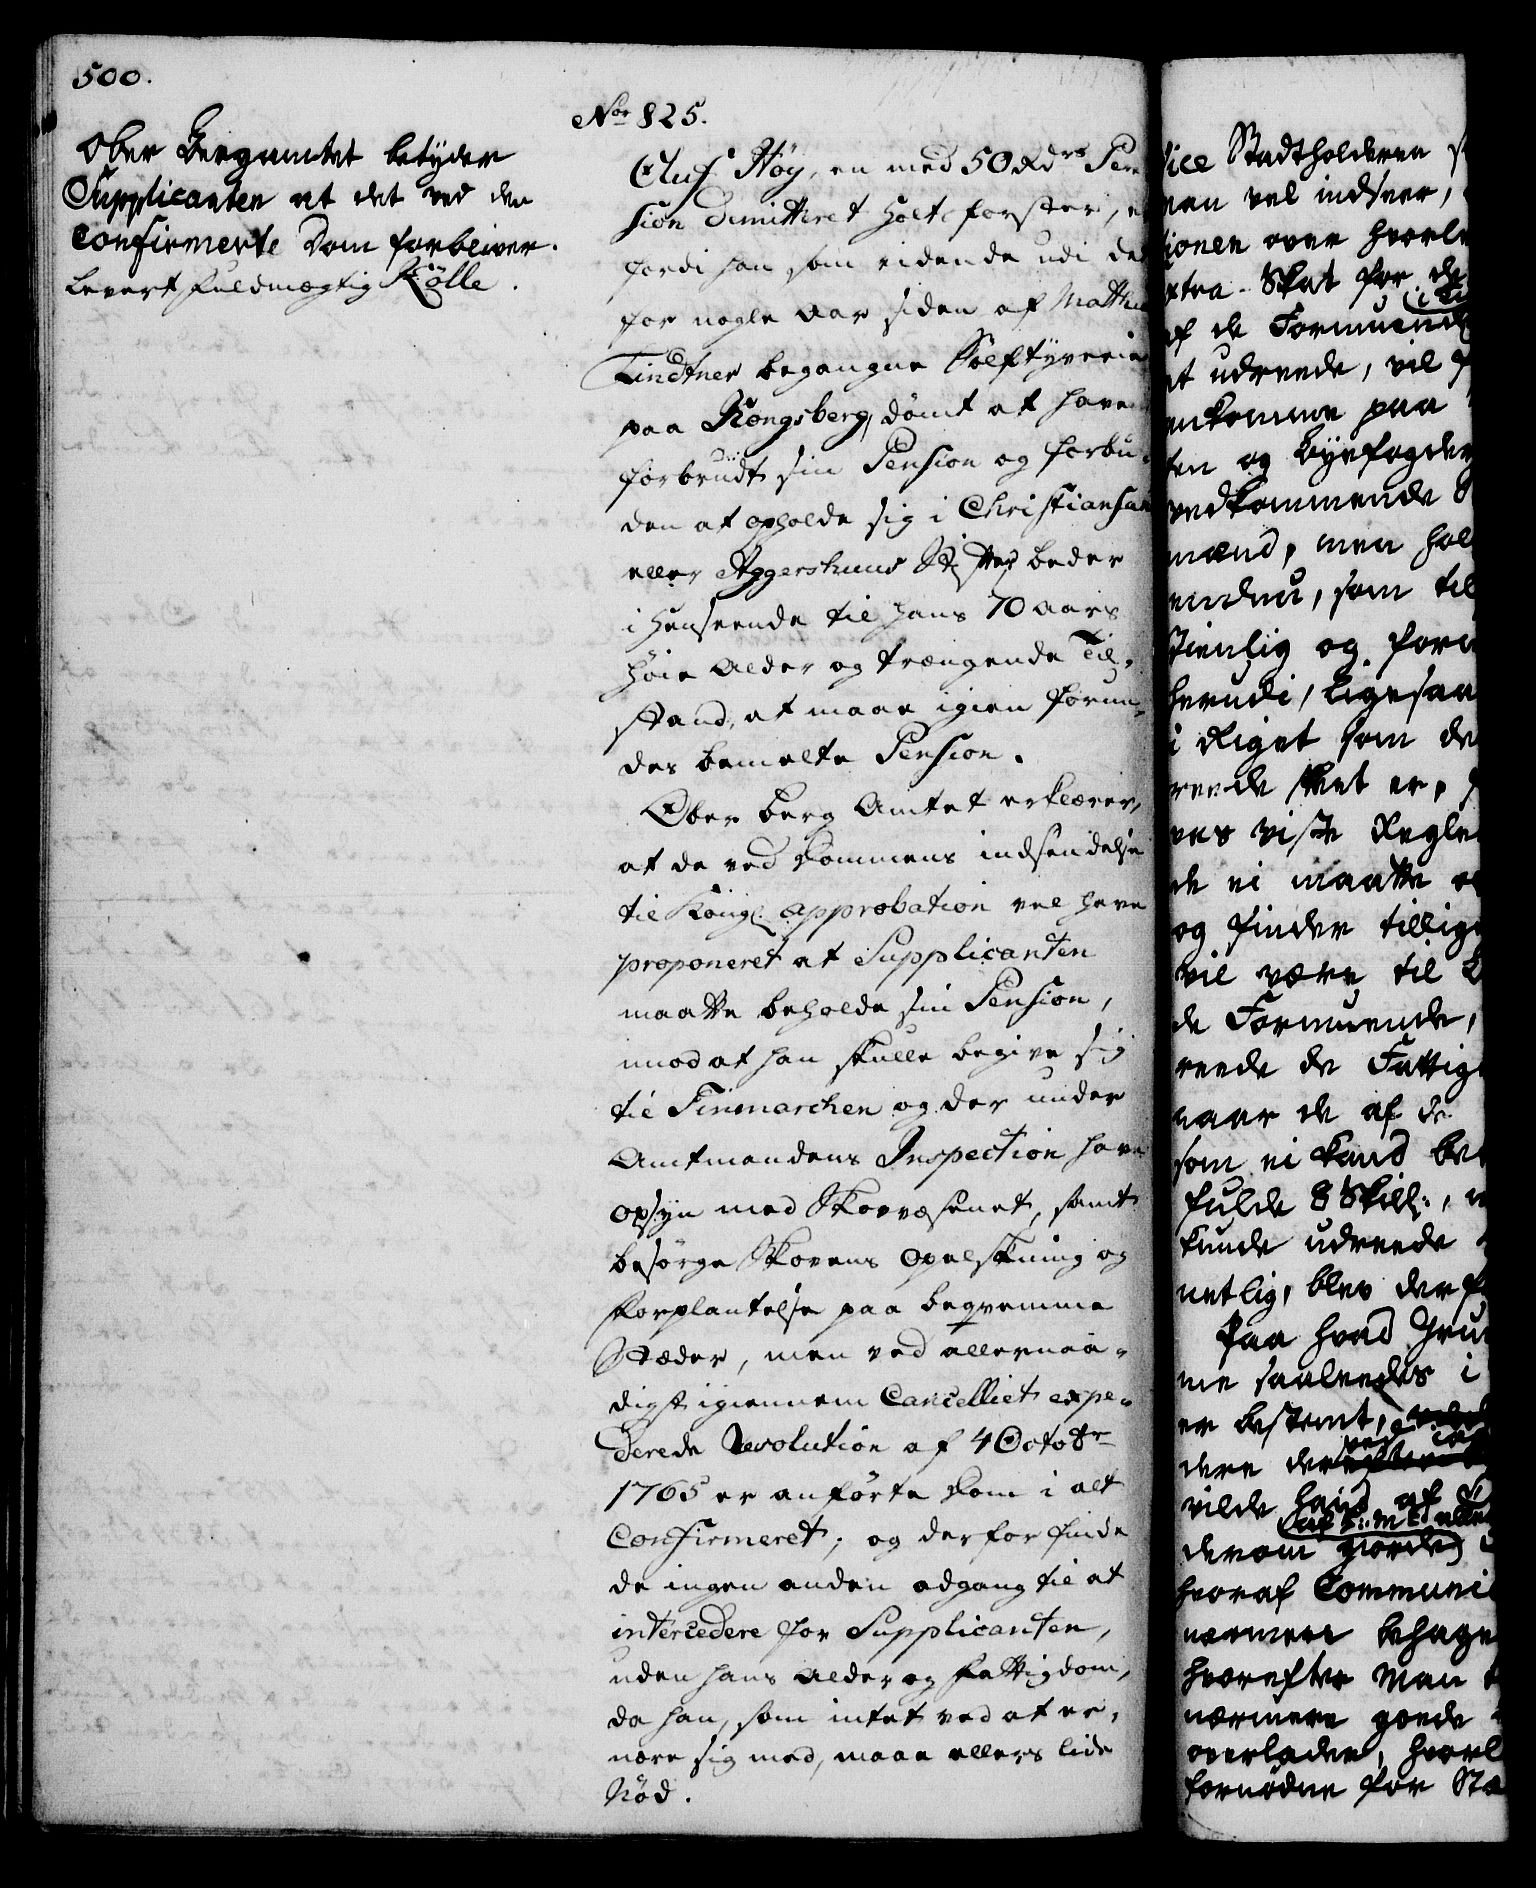 500.
Ober Bergamtet betyder
Supplicanten at det ved den
Confirmerte Dom forbliver.
Levert Fuldmægtig Kölle.
Nor 825.
Oluf Höy, en med 50 Rdrs Pen
sion dimitteret Holtsforster, e
fordi han som vidende udi det
for nogle Aar siden af Mathias
Lindtner begangne Sölftyverie
paa Kongsberg, dömt at have
forbrudt sin Pension og forbu-
den at opholde sig i Christiansan
eller Aggershuus Stifter beder
i Henseende til hans 70 Aars
höie Alder og trængende Til-
stand, at maae igien forun-
des bemelte Pension.
Ober Berg Amtet erklærer,
at de ved Dommens indsendelse
til Kongl. approbation vel have
proponeret at Supplicanten
maatte beholde sin Pension,
imod at han skulle begive sig
til Finmarchen og der under
Amtmandens Inspection have
opsyn med Skovvæsenet, samt
besörge Skovens Opelskning og
forplantelse paa beqvemme
Stæder, men ved allernaa-
digst igiennem Cancelliet expe-
derede Resolution af 4 Octobr
1765 er anförte Dom i alt
Confirmeret; og derfor finde
de ingen anden adgang til at
intercedere for Supplicanten,
uden hans Alder og Fattigdom,
da han, som intet ved at er-
nære sig med, maae ellers lide
Nöd.
Vice Stadtholderen
man vel indseer,
ionen over hvorle
xtra-Skat for de
af de Formuende
at udreede, vil
ankomme paa
ten og Byefogder
vedkommende
mænd, men hol
endnu, som til
tienlig og forn
herudi, ligesaa
i Riget som de
reede skeet er,
ves viste Regle
de ei maatte
og finder tillige
vil være til
de Formuende,
reede de Fattig
naar de af de
som ei kand be
fulde 8 Skill.,
kunde udreede
netlig, blev der
Paa hvad Gru
me saaledes i
er bestemt,
dere
vilde hand af
derom giorde
hvoraf Communi
nærmere behage
hvorefter Man
nærmere goede
overlader, hvorl
fornödne for Sta